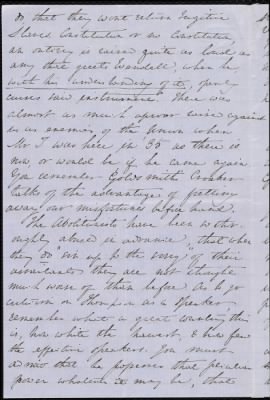 so that they wont return Fugitive
Slaves Constitution or no Constitution
an outcry is raised quite as loud as
any that greets Wendell, when he
with his understanding of it, openly
curses said instrument. There was
almost as much uproar raised against
us as enemies of the Union when
Mr T was here in 35 as there is
now, or would be if he came again
You remember Goldsmith's Croaker
talks of the advantage of fretting
away our misfortunes before hand.
The Abolitionists have been so thor-
oughly abused in advance, that when
they do come up to the of their
they are not thought
much worse of than before. As to go
on Thompson as a speaker
remember what a great country this
is, how white the harvest, & how few
the effective speakers. You must
admit that he possesses that peculiar
power whatever it may be, that